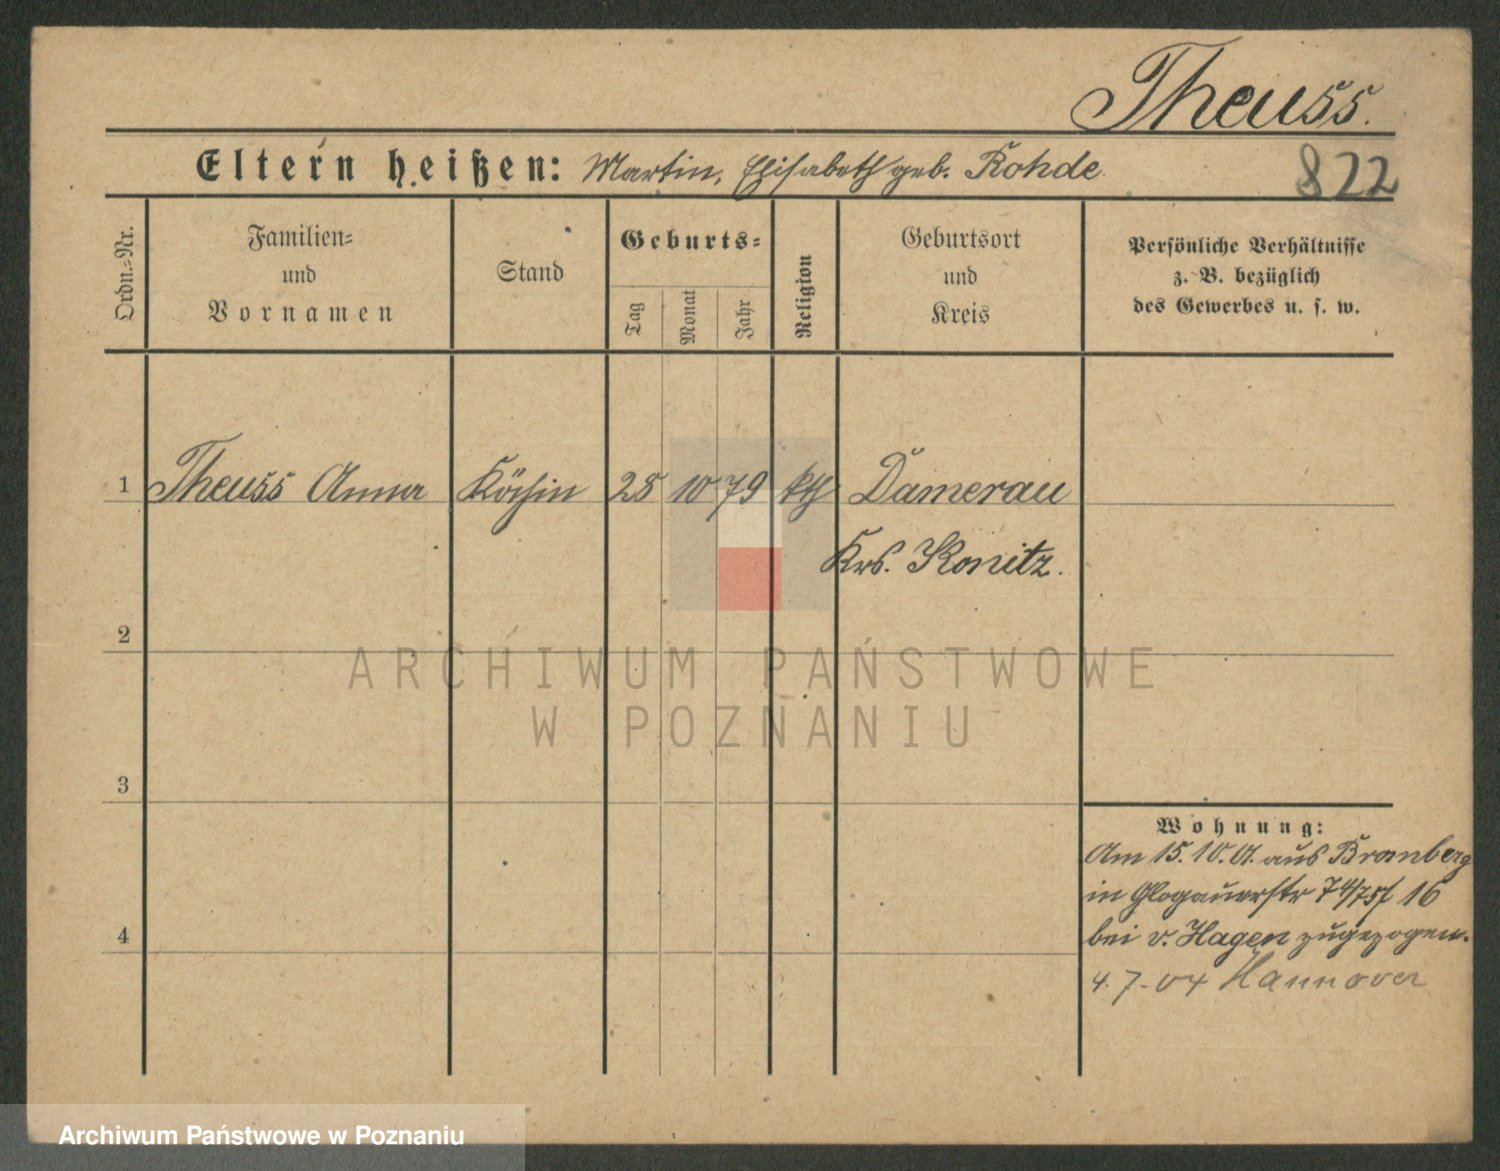 Theuss.
Eltern heißen: Martin, Elisabeth geb. Rohde
822
Ordn.=Nr.
Familien=
und
Vornamen
Stand
Geburts=
Tag
Monat
Jahr
Religion
Geburtsort
und
Kreis
Persönliche Verhältnisse
z. B. bezüglich
des Gewerbes u. s. w.
1 Theuss Anna Köchin 28 10 79 kth Damerau
Krs. Konitz.
2
ARCHIWUM PAŃSTWOWE
W POZNANIU
3
Wohnung:
Am 15.10. aus Bromberg
in Glogauerstr 74/75 16
bei v. Hagen zugezogen.
4
4.7.04 Hannover
Archiwum Państwowe w Poznaniu